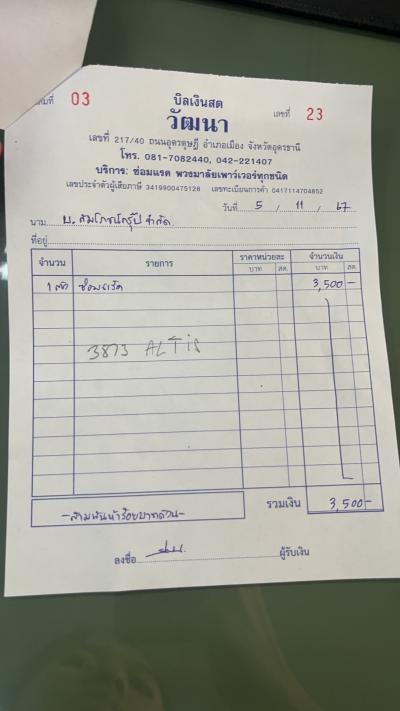 เล่มที่ 03
บิลเงินสด
เลขที่ 23
วัฒนา
เลขที่ 217/40 ถนนอุดรดุษฎี อำเภอเมือง จังหวัดอุดรธานี
โทร. 081-7082440, 042-221407
บริการ: ซ่อมแรค พวงมาลัยเพาเวอร์ทุกชนิด
เลขประจำตัวผู้เสียภาษี 3419900475128 เลขทะเบียนการค้า 0417114704852
วันที่ 5 / 11 / 67
นาม บ. สมโภชน์กรุ๊ป จำกัด
ที่อยู่
จำนวน รายการ ราคาหน่วยละ จำนวนเงิน
บาท สต. บาท สต.
1 ซ่อมแร็ค 3,500 -
3873 ALTIS
-สามพันห้าร้อยบาทถ้วน- รวมเงิน 3,500 -
ลงชื่อ ผู้รับเงิน